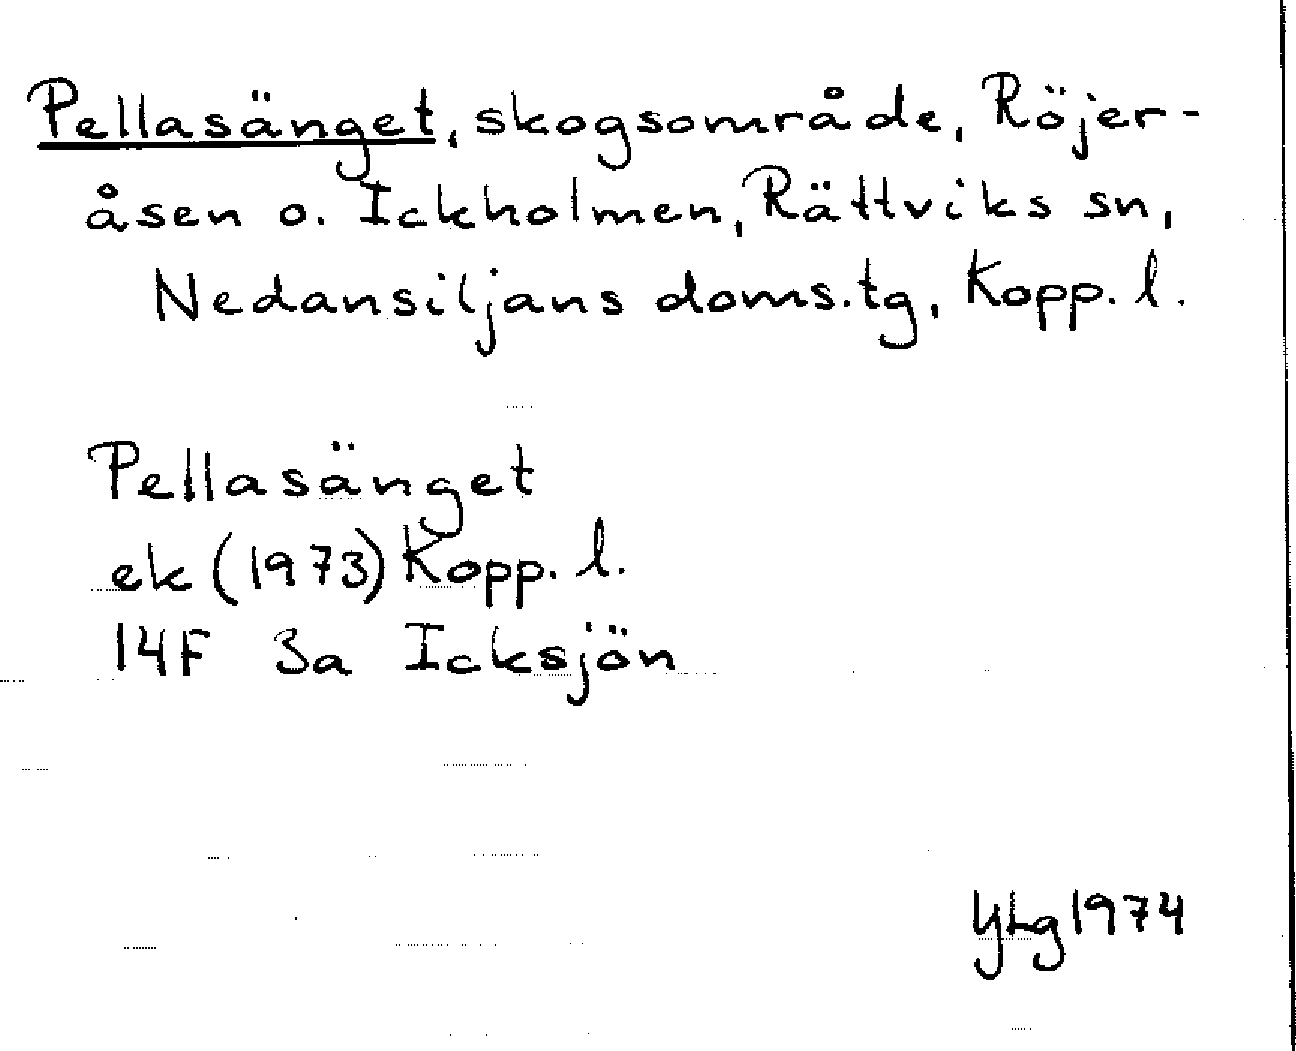 Pellasänget, skogsområde, Röjer-
åsen o. Ickholmen, Rättviks sn,
Nedansiljans doms.tg, Kopp. l.
Pellasänget
ek (1973) Kopp. l.
14F 3a Icksjön
YLg 1974